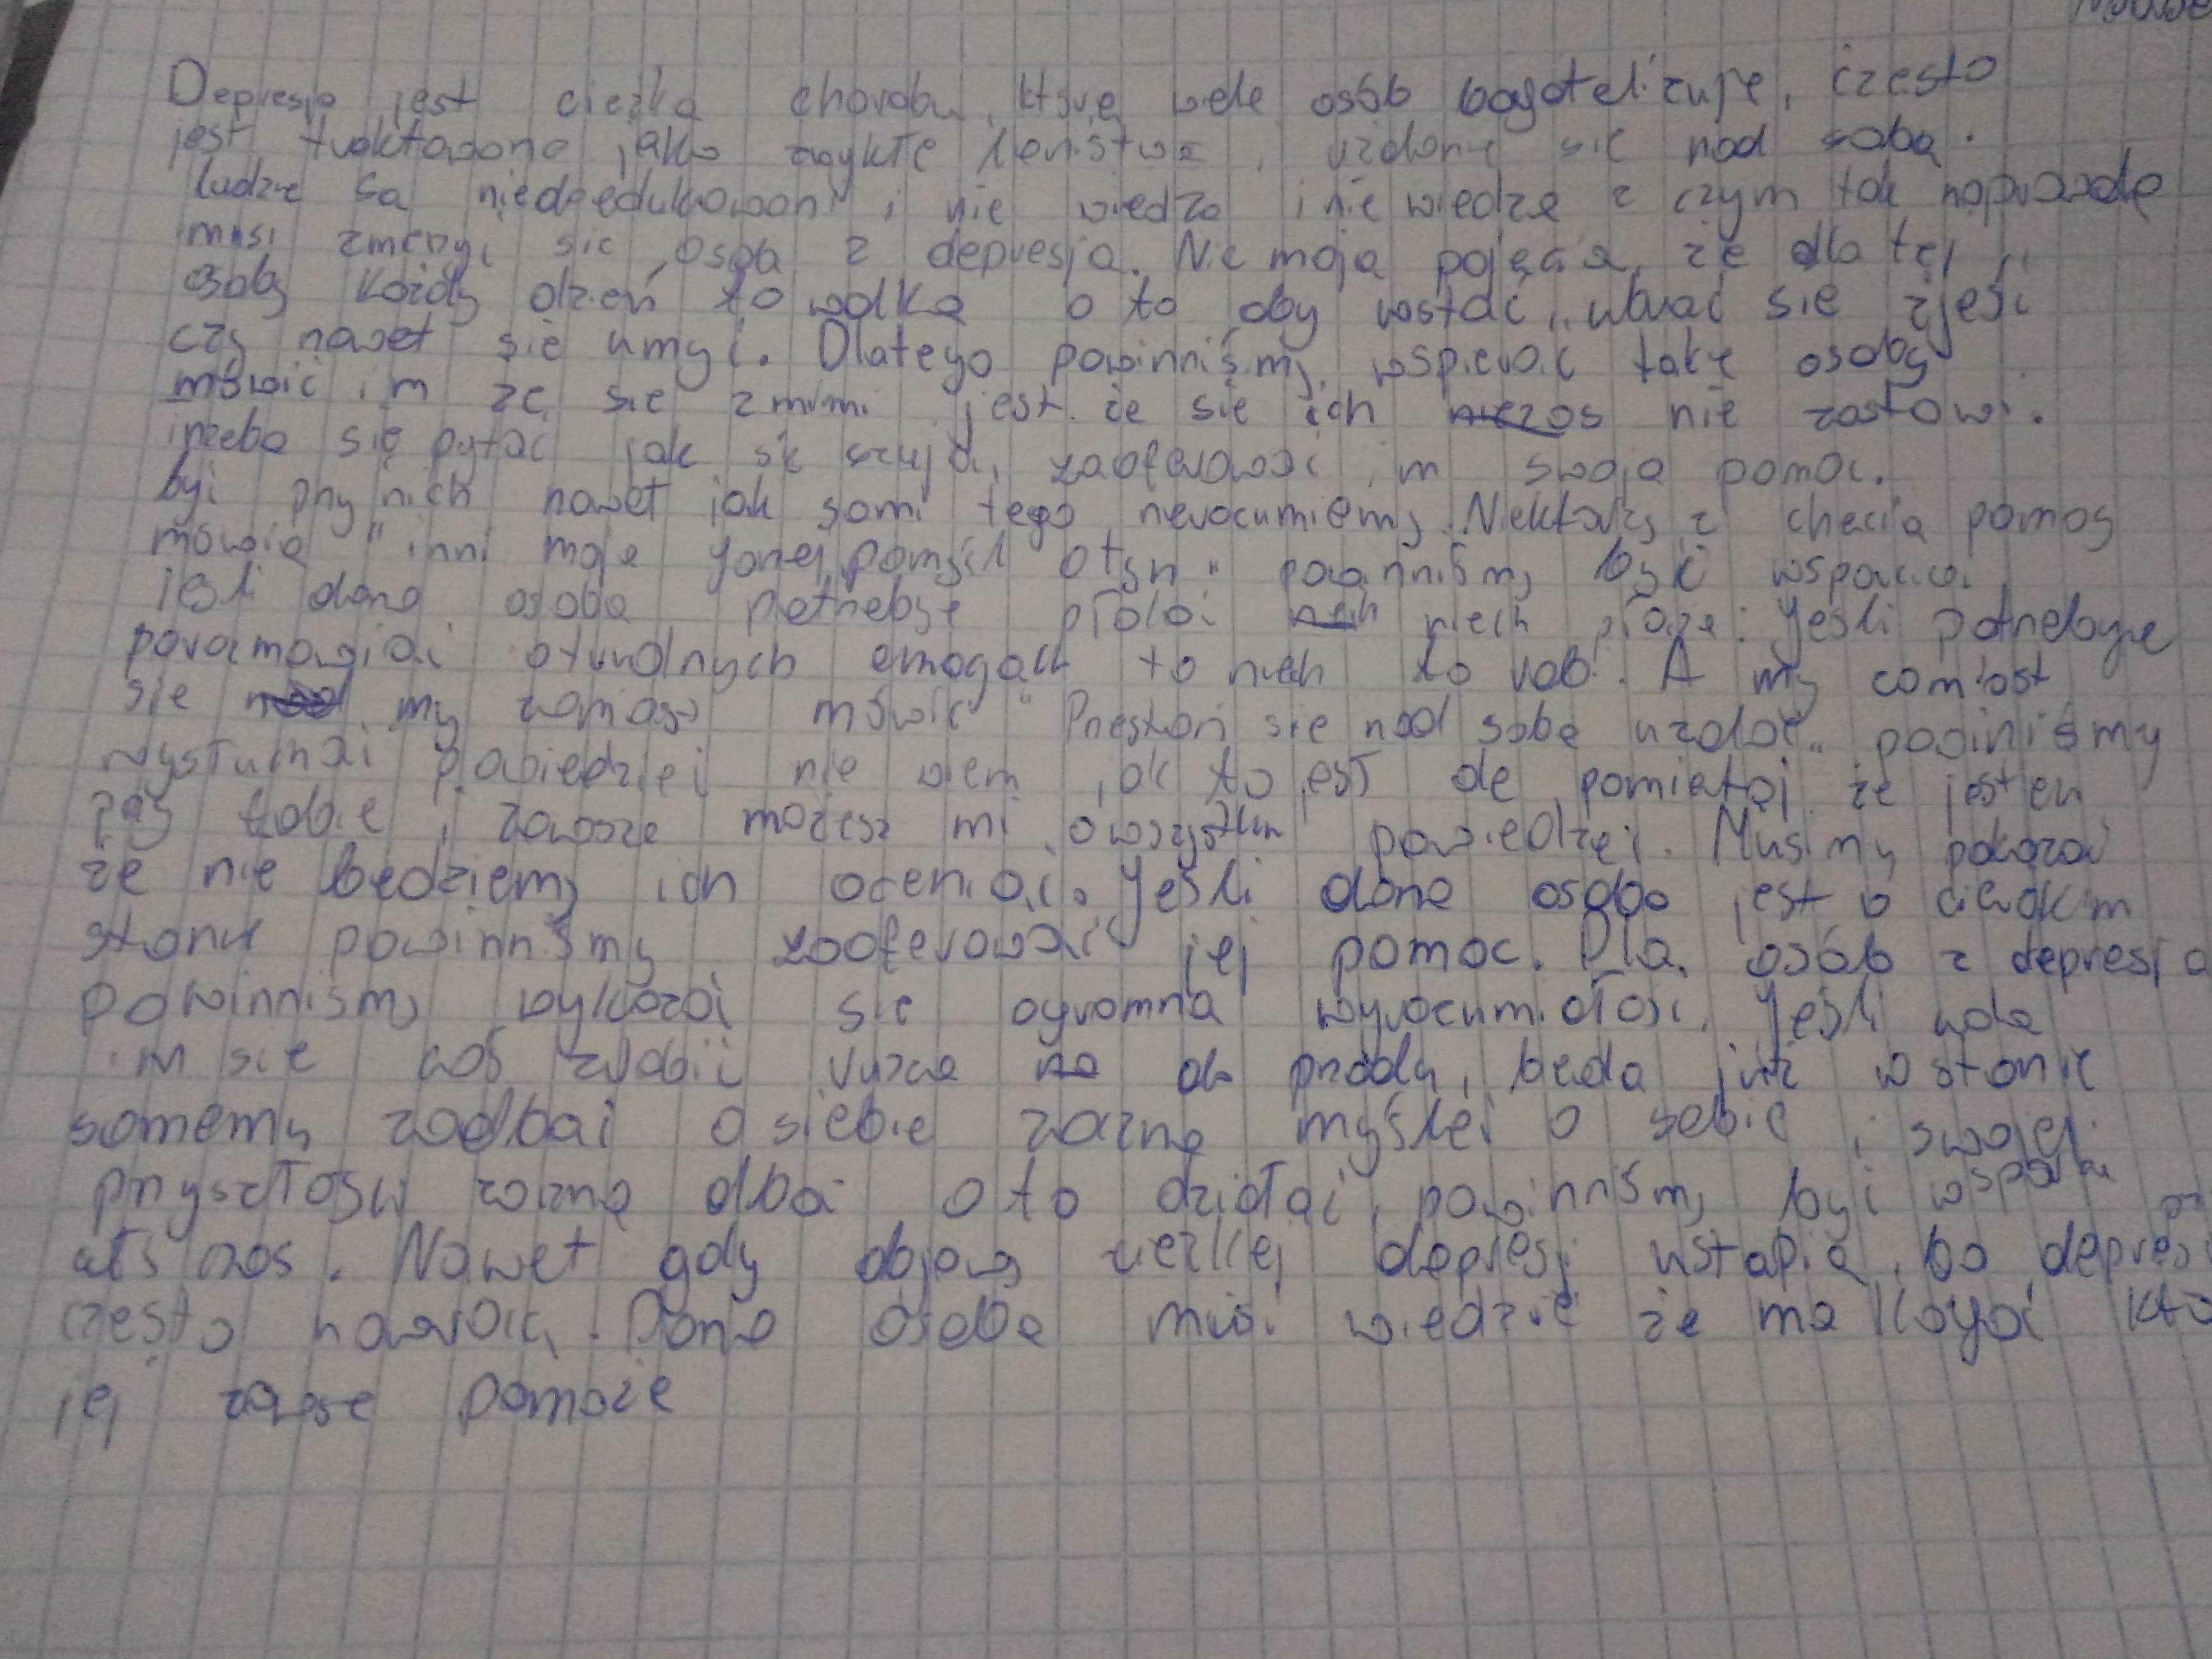 Depresja jest cieżka choroba, którą wiele osób bagatelizuje, często
jest traktowana jako zwykłe lenistwo, użalanie sie nad sobą.
ludzie sa niedoedukowani i nie wiedza i nie wiedza z czym tak naprawdę
musi zmerzyć sie osoba z depresja. Nie maja pojęcia, że dla tej
osoby każdy dzień to walka o to aby wstać, ubrać sie zjeść
czy nawet sie umyć. Dlatego powinniśmy wspierać take osoby
mówić im że sie z nimi jest. że się ich nie zostawi.
trzeba się pytać jak sie czują, zaoferować im swoja pomoc.
być przy nich nawet jak sami tego nierozumiemy. Niektórzy z checia pomos
mówia "inni maja gorzej pomyśl o tym" powinniśmy być wsparciem
jesli dana osoba potrzebuje płakać niech płacze. Jesli potrzebuje
porozmawiać o trudnych emocjach to niech to robi. A my zamiast
sie my zamiast mówić "Przestań sie nad soba użalać" powiniśmy
wysłuchać powiedzieć nie wiem jak to jest ale pamietaj że jestem
przy tobie i zawsze możesz mi o wszystkim powiedzieć. Musimy pokazać
że nie bedziemy ich oceniać. Jeśli dana osoba jest w cieżkim
stanie powinniśmy zaoferować jej pomoc. Dla osób z depresja
powinniśmy wykazać sie ogromna wyrozumiałoś. Jeśli uda
im sie coś zrobić rusza do przodu, beda już w stanie
samemu zadbać o siebie zaczna myśleć o sebie i swojej
przyszłości zaczna dbać o to działać, powinniśmy być wsparciem
cały czas. Nawet gdy objawy cieżkiej depresji ustapia, bo depres
czesto nawraca. Dana osoba musi wiedzieć że ma kogoś któ
jej zawsze pomoże